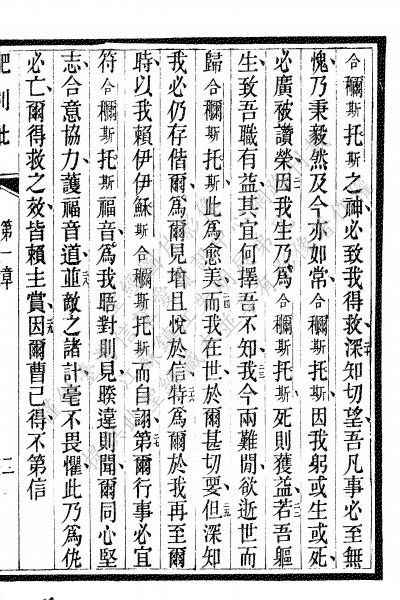 合穪斯托斯之神必致我得救深知切望吾凡事必至無
愧乃秉毅然及今亦如常合穪斯托斯因我躬或生或死
必廣被讚榮因我生乃為合穪斯托斯死則獲益若吾軀
生致吾職有益其宜何擇吾不知我今兩難閒欲逝世而
歸合穪斯托斯此為愈美而我在世於爾甚切要但深知
我必仍存偕爾為爾見增且悅於信特為爾於我再至爾
時以我賴伊伊穌斯合穪斯托斯而自詡第爾行事必宜
符合穪斯托斯福音為我晤對則見睽違則聞爾同心堅
志合意協力護福音道並敵之諸計毫不畏懼此乃為仇
必亡爾得救之效皆賴主賞因爾曹已得不第信
肥利批
第一章
二